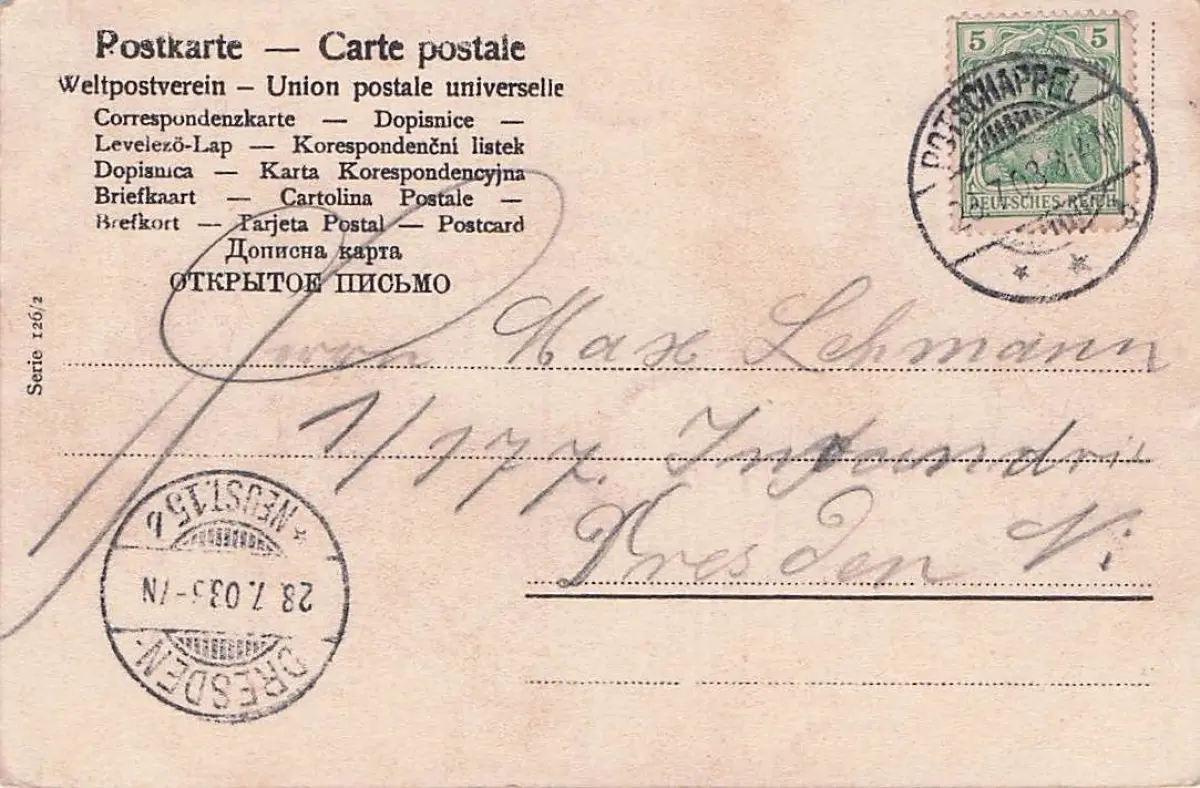 Postkarte — Carte postale
Weltpostverein – Union postale universelle
Correspondenzkarte — Dopisnice —
Levelező-Lap — Korespondenční listek
Dopisnica — Karta Korespondencyjna
Briefkaart — Cartolina Postale —
Brefkort — Tarjeta Postal — Postcard
Дописна карта
ОТКРЫТОЕ ПИСЬМО
Serie 126/2
5 5
DEUTSCHES REICH
POTSCHAPPEL
7.03.
Herrn Max Lehmann
1/177.
Dresden N.
* NEUST.15 b
28.7.03. -7N
DRESDEN-